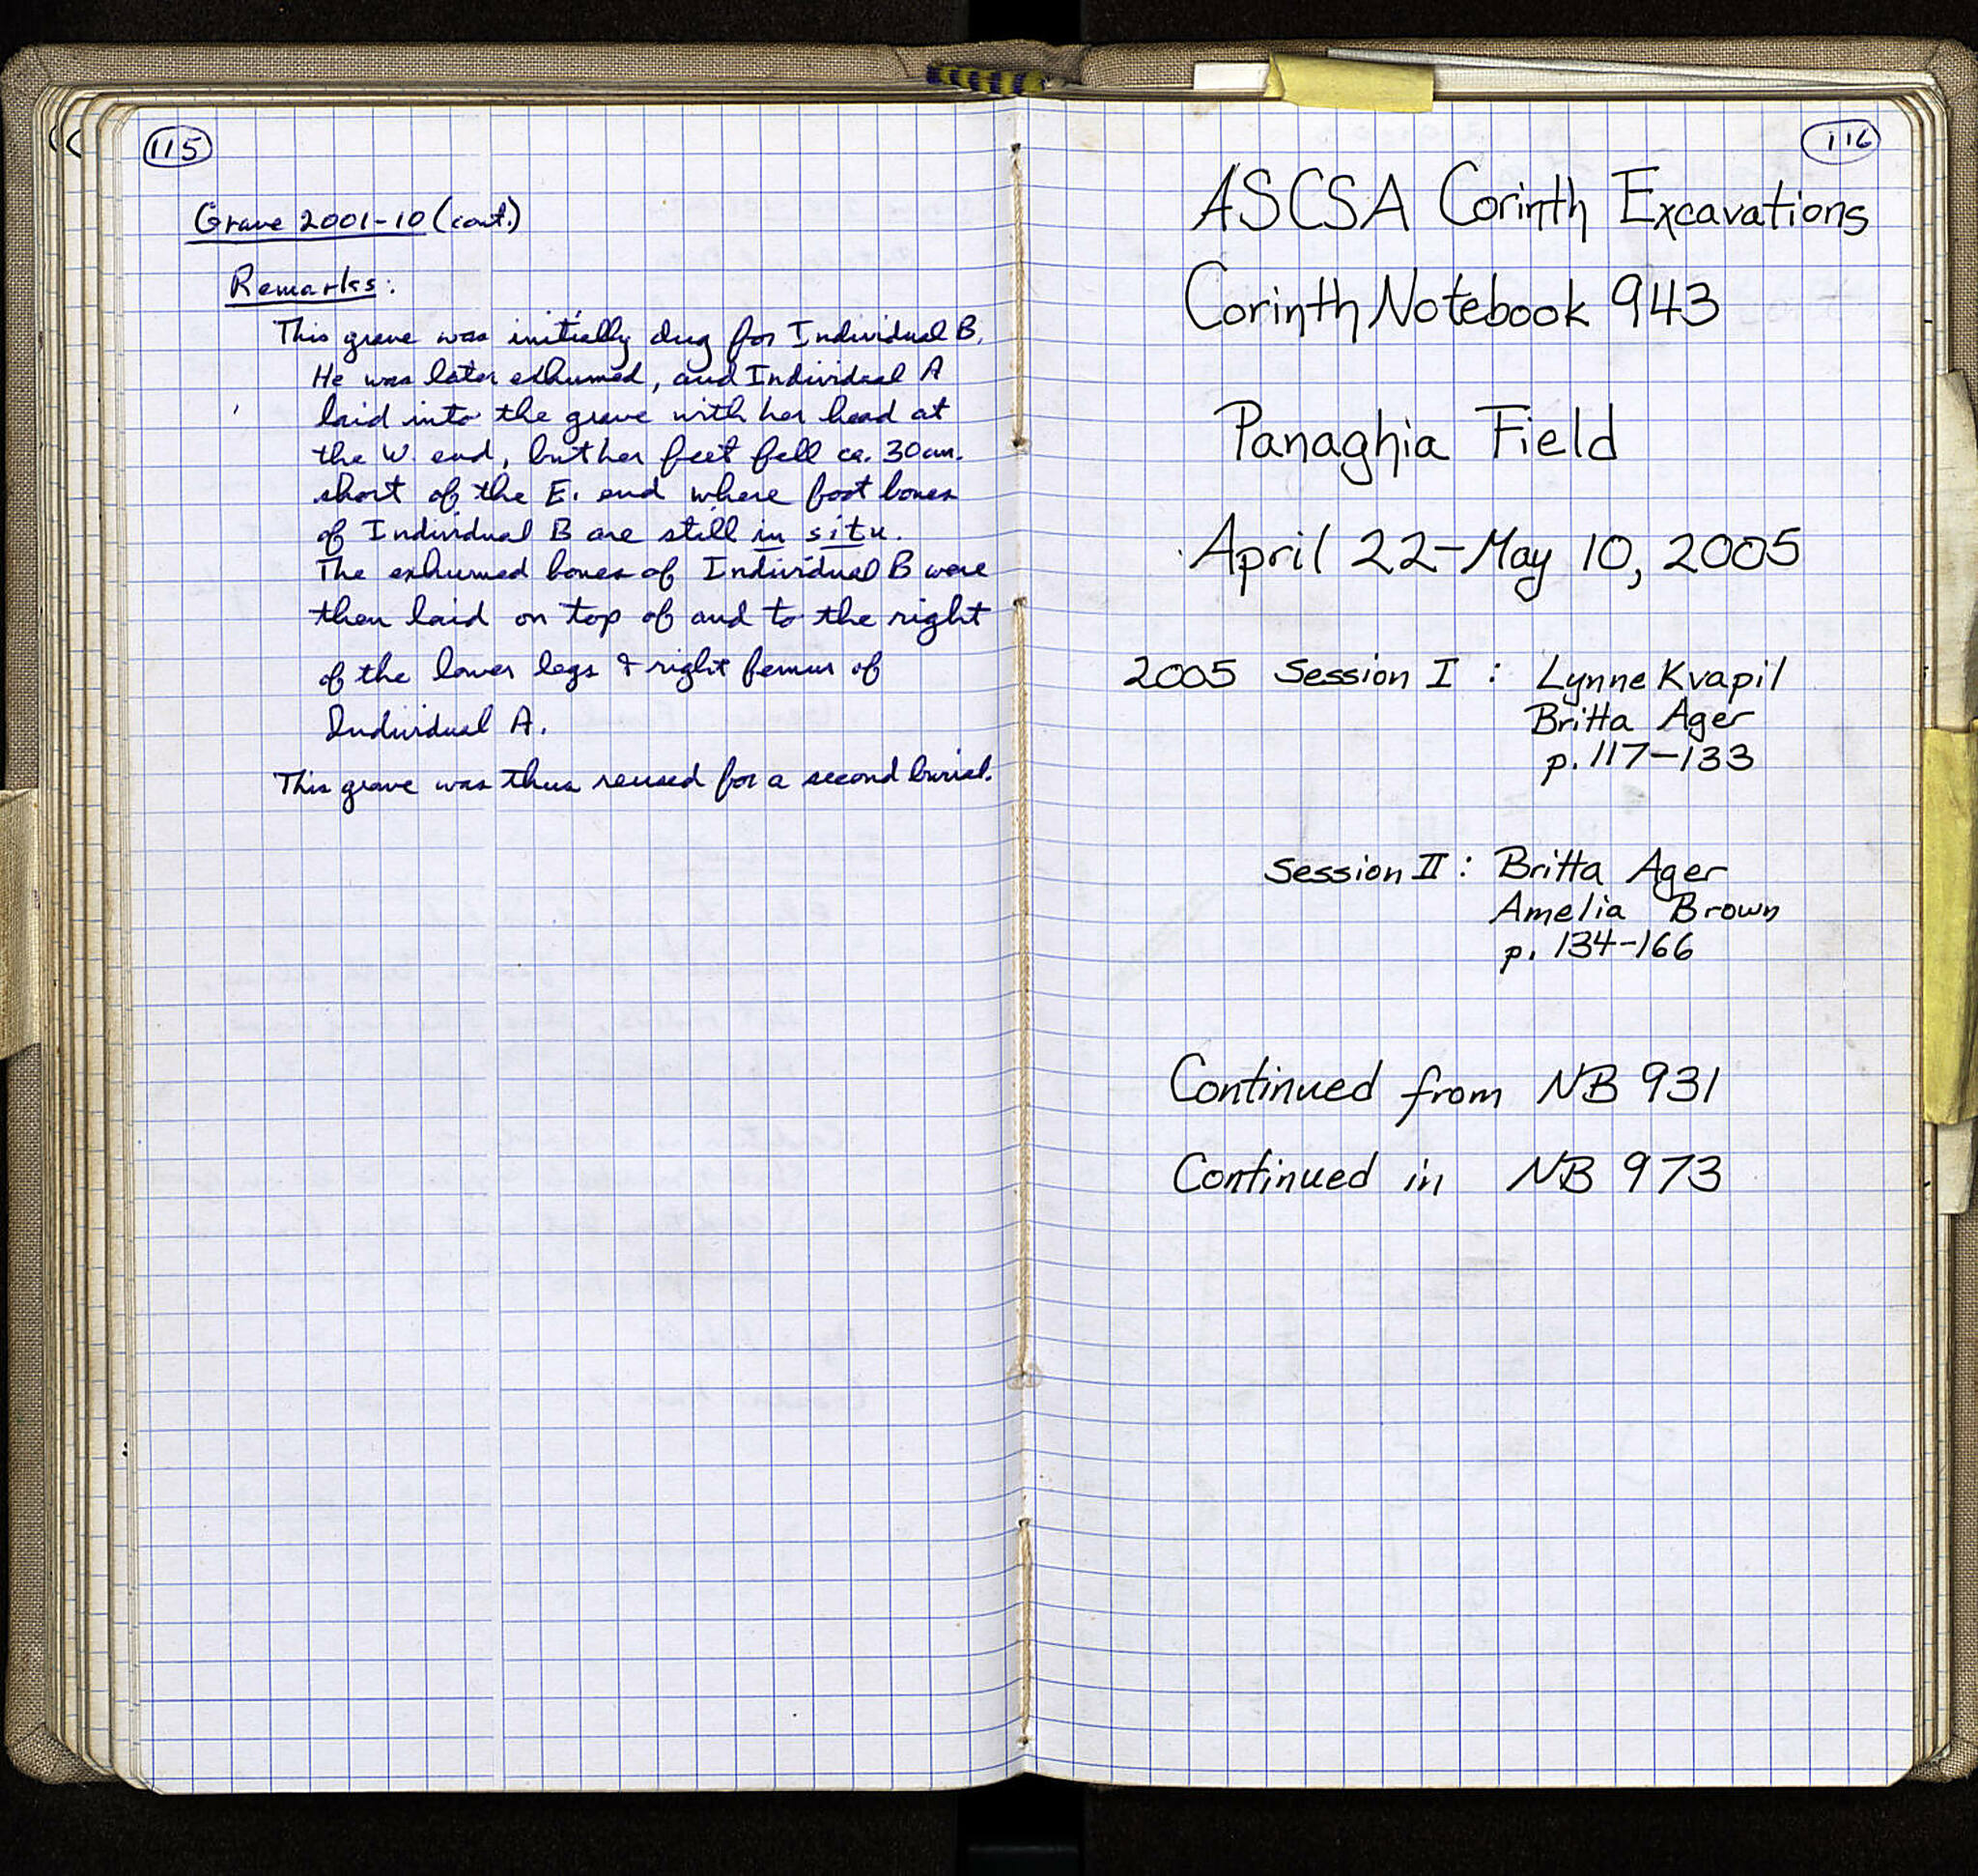 115
Grave 2001-10 (cont.)
Remarks:
This grave was initially dug for Individual B.
He was later exhumed, and Individual A
laid into the grave with her head at
the W. end, but her feet fell ca. 30cm.
short of the E. end where foot bones
of Individual B are still in situ.
The exhumed bones of Individual B were
then laid on top of and to the right
of the lower legs & right femur of
Individual A.
This grave was thus reused for a second burial.
116
ASCSA Corinth Excavations
Corinth Notebook 943
Panaghia Field
April 22-May 10, 2005
2005 Session I : Lynne Kvapil
Britta Ager
p. 117-133
Session II : Britta Ager
Amelia Brown
p. 134-166
Continued from NB 931
Continued in NB 973